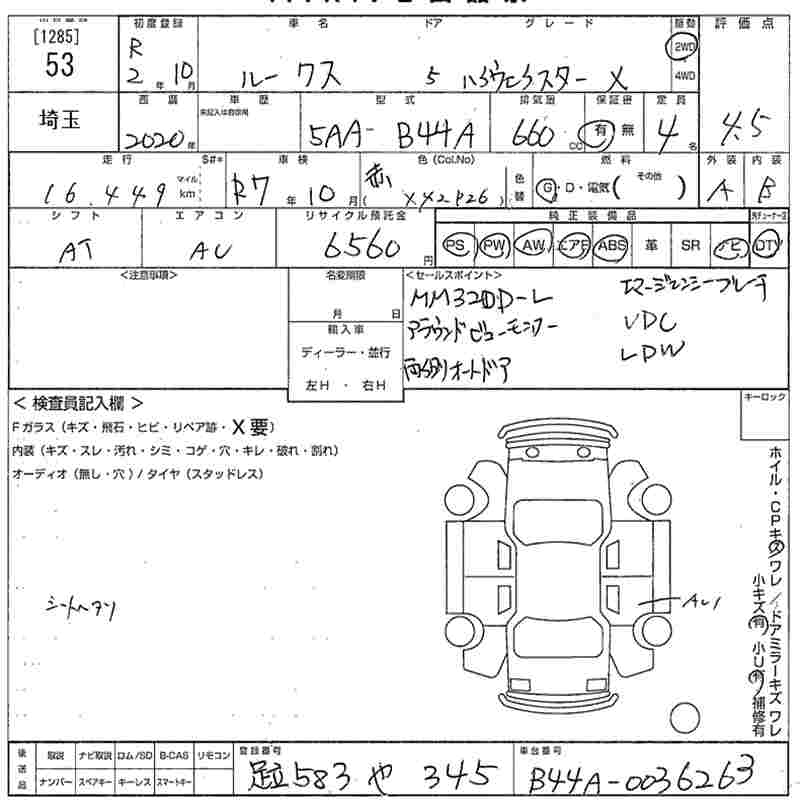 [1285]
53
初度登録
R
2年 10月
車名
ルークス
ドア
5
グレード
ハイウェイスター X
駆動
2WD
4WD
評価点
4.5
埼玉
西暦
2020年
車歴
未記入は自家用
型式
5AA- B44A
排気量
660cc
保証書
有 無
定員
4名
走行
16,449
マイル
km
S#*
車検
R7年 10月
色 (Col.No)
赤
( XX2426 )
色替
燃料
G・D・電気( その他 )
外装
A
内装
B
シフト
AT
エアコン
AC
リサイクル預託金
6560円
純正装備品
PS PW AW エアB ABS 革 SR ナビ
DTV
<注意事項>
名変期限
月 日
輸入車
ディーラー・並行
左H ・ 右H
<セールスポイント>
MM320D-L
アラウンドビューモニター
両側オートドア
エマージェンシーブレーキ
VDC
LDW
キーロック
< 検査員記入欄 >
Fガラス (キズ・飛石・ヒビ・リペア跡・X要)
内装 (キズ・スレ・汚れ・シミ・コゲ・穴・キレ・破れ・割れ)
オーディオ (無し・穴) / タイヤ (スタッドレス)
シートヘタリ
AU1
ホイル・CPキズワレ/ドアミラーキズワレ
小キズ(有) 小U(有) 補修有
後送品
取説 ナビ取説 ロム/SD B-CAS リモコン
ナンバー スペアキー キーレス スマートキー
登録番号
足立 583 や 345
車台番号
B44A-0036263